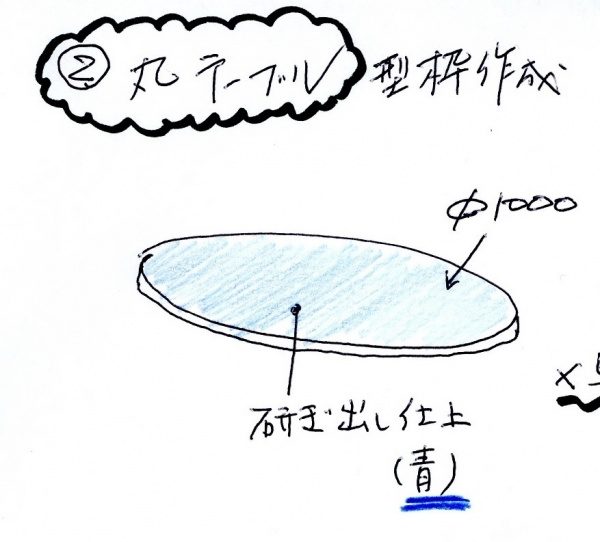 ② 丸テーブル 型枠作成
φ1000
研ぎ出し仕上
(青)